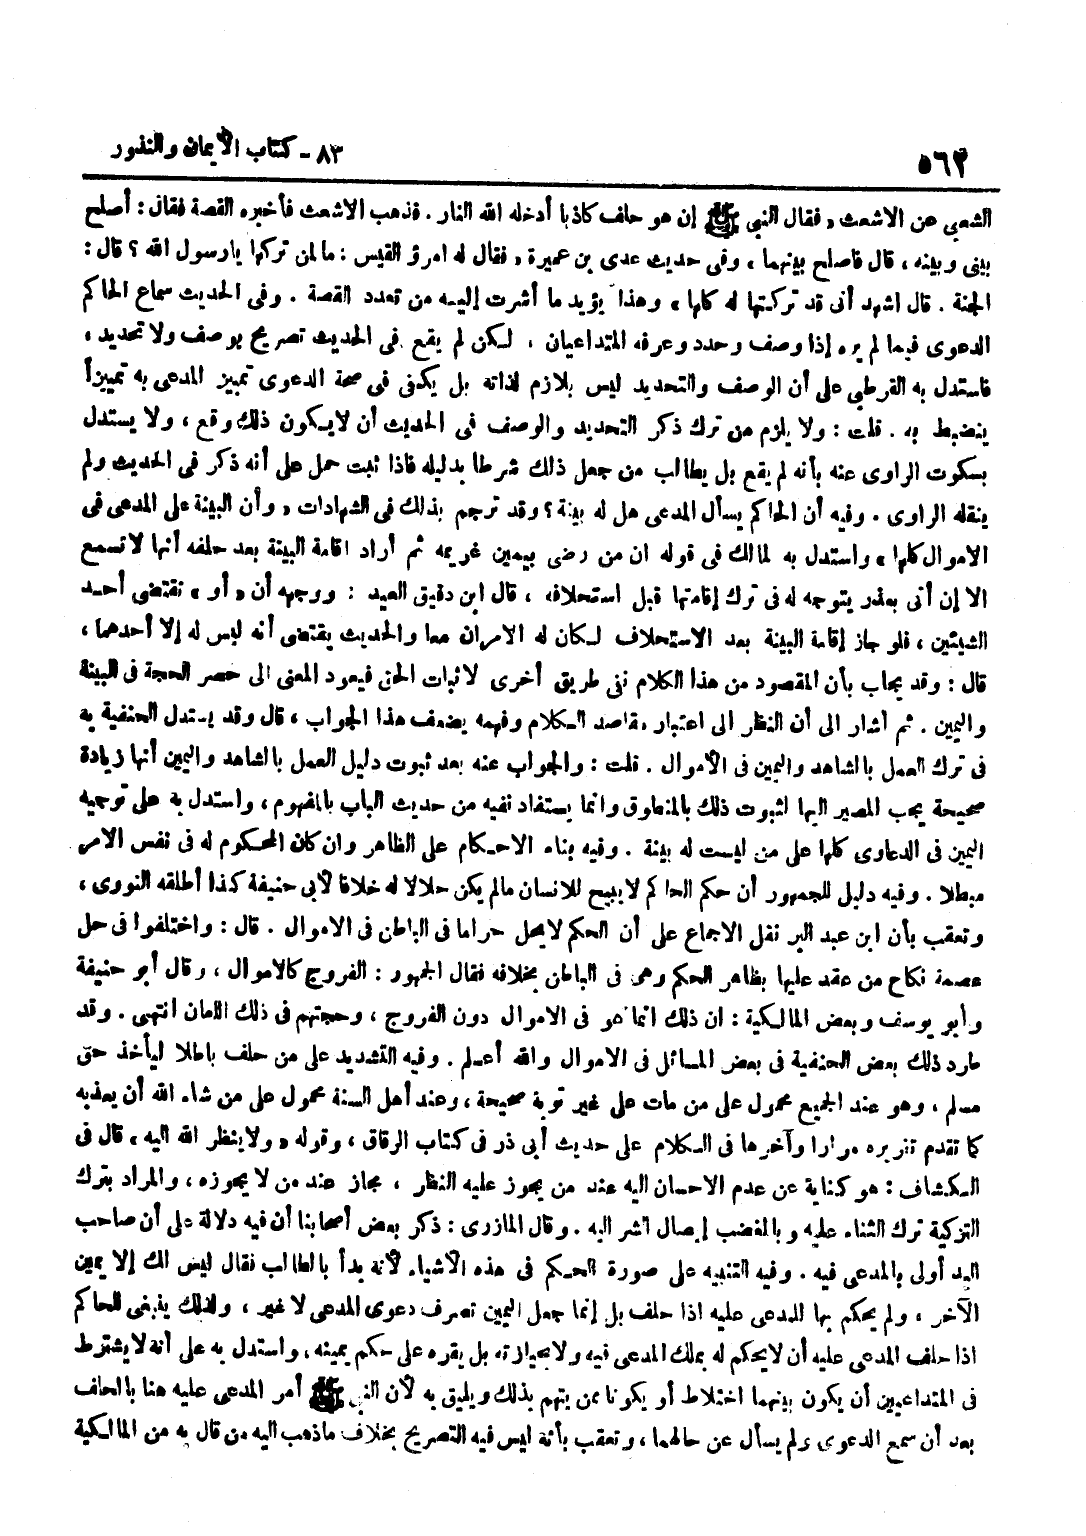 ٥٦٢
٨٣ - كتاب الأيمان والنذور
الشعبي عن الاشعث « فقال النبي ﷺ إن هو حلف كاذبا أدخله الله النار . فذهب الاشعث فأخبره القصة فقال : أصلح
بيني وبينه ، قال فاصلح بينهما ، وفى حديث عدى بن عميرة « فقال له امرؤ القيس : مالمن تركها يارسول الله ؟ قال :
الجنة . قال اشهد أنى قد تركتها له كلها » وهذا يؤيد ما أشرت إليه من تعدد القصة . وفى الحديث سماع الحاكم
الدعوى فيما لم يره إذا وصف وحدد وعرفه المتداعيان ، لكن لم يقع فى الحديث تصريح بوصف ولا تحديد ،
فاستدل به القرطبي على أن الوصف والتحديد ليس بلازم لذاته بل يكفى فى صحة الدعوى تمييز المدعى به تمييزاً
ينضبط به . قلت : ولا يلزم من ترك ذكر التحديد والوصف فى الحديث أن لا يكون ذلك وقع ، ولا يستدل
بسكوت الراوى عنه بأنه لم يقع بل يطالب من جعل ذلك شرطا بدليله فاذا ثبت حمل على أنه ذكر فى الحديث ولم
ينقله الراوى . وفيه أن الحاكم يسأل المدعى هل له بينة ؟ وقد ترجم بذلك فى الشهادات « وأن البينة على المدعى فى
الاموال كلها » واستدل به لمالك فى قوله ان من رضى بيمين غريمه ثم أراد اقامة البينة بعد حلفه أنها لا تسمع
الا إن أتى بعذر يتوجه له فى ترك إقامتها قبل استحلافه ، قال ابن دقيق العيد : ووجهه أن « أو » تقتضى أحد
الشيئين ، فلو جاز إقامة البينة بعد الاستحلاف لكان له الامران معا والحديث يقتضى أنه ليس له إلا أحدهما ،
قال : وقد يجاب بأن المقصود من هذا الكلام نفى طريق أخرى لاثبات الحق فيعود المعنى الى حصر الحجة فى البينة
واليمين . ثم أشار الى أن النظر الى اعتبار مقاصد الكلام وفهمه يضعف هذا الجواب ، قال وقد يستدل الحنفية به
فى ترك العمل بالشاهد واليمين فى الأموال . قلت : والجواب عنه بعد ثبوت دليل العمل بالشاهد واليمين أنها زيادة
صحيحة يجب المصير اليها لثبوت ذلك بالمنطوق وانما يستفاد نفيه من حديث الباب بالمفهوم ، واستدل به على توجيه
اليمين فى الدعاوى كلها على من ليست له بينة . وفيه بناء الاحكام على الظاهر وان كان المحكوم له فى نفس الامر
مبطلا . وفيه دليل للجمهور أن حكم الحاكم لا يبيح للانسان مالم يكن حلالا له خلافا لأبى حنيفة كذا أطلقه النووى ،
وتعقب بأن ابن عبد البر نقل الاجماع على أن الحكم لا يحل حراما فى الباطن فى الاموال . قال : واختلفوا فى حل
عصمة نكاح من عقد عليها بظاهر الحكم وهى فى الباطن بخلافه فقال الجمهور : الفروج كالاموال ، وقال أبو حنيفة
وأبو يوسف وبعض المالكية : ان ذلك انما هو فى الاموال دون الفروج ، وحجتهم فى ذلك اللعان انتهى . وقد
طرد ذلك بعض الحنفية فى بعض المسائل فى الاموال والله أعلم . وفيه التشديد على من حلف باطلا ليأخذ حق
مسلم ، وهو عند الجميع محمول على من مات على غير توبة صحيحة ، وعند أهل السنة محمول على من شاء الله أن يعذبه
كما تقدم تقريره مرارا وآخرها فى الكلام على حديث أبى ذر فى كتاب الرقاق ، وقوله « ولا ينظر الله اليه » قال فى
الكشاف : هو كناية عن عدم الاحسان اليه عند من يجوز عليه النظر ، مجاز عند من لا يجوزه ، والمراد بترك
التزكية ترك الثناء عليه وبالغضب إيصال الشر اليه . وقال المازرى : ذكر بعض أصحابنا أن فيه دلالة على أن صاحب
اليد أولى بالمدعى فيه . وفيه التنبيه على صورة الحكم فى هذه الأشياء لأنه بدأ بالطالب فقال ليس لك إلا يمين
الآخر ، ولم يحكم بها للمدعى عليه اذا حلف بل إنما جعل اليمين تصرف دعوى المدعى لا غير ، ولذلك ينبغى للحاكم
اذا حلف المدعى عليه أن لا يحكم له بملك المدعى فيه ولا بحيازته بل يقره على حكم يمينه ، واستدل به على أنه لا يشترط
فى المتداعيين أن يكون بينهما اختلاط أو يكونا ممن يتهم بذلك ويليق به لأن النبى ﷺ أمر المدعى عليه هنا بالحلف
بعد أن سمع الدعوى ولم يسأل عن حالهما ، وتعقب بأنه ليس فيه التصريح بخلاف ماذهب اليه من قال به من المالكية